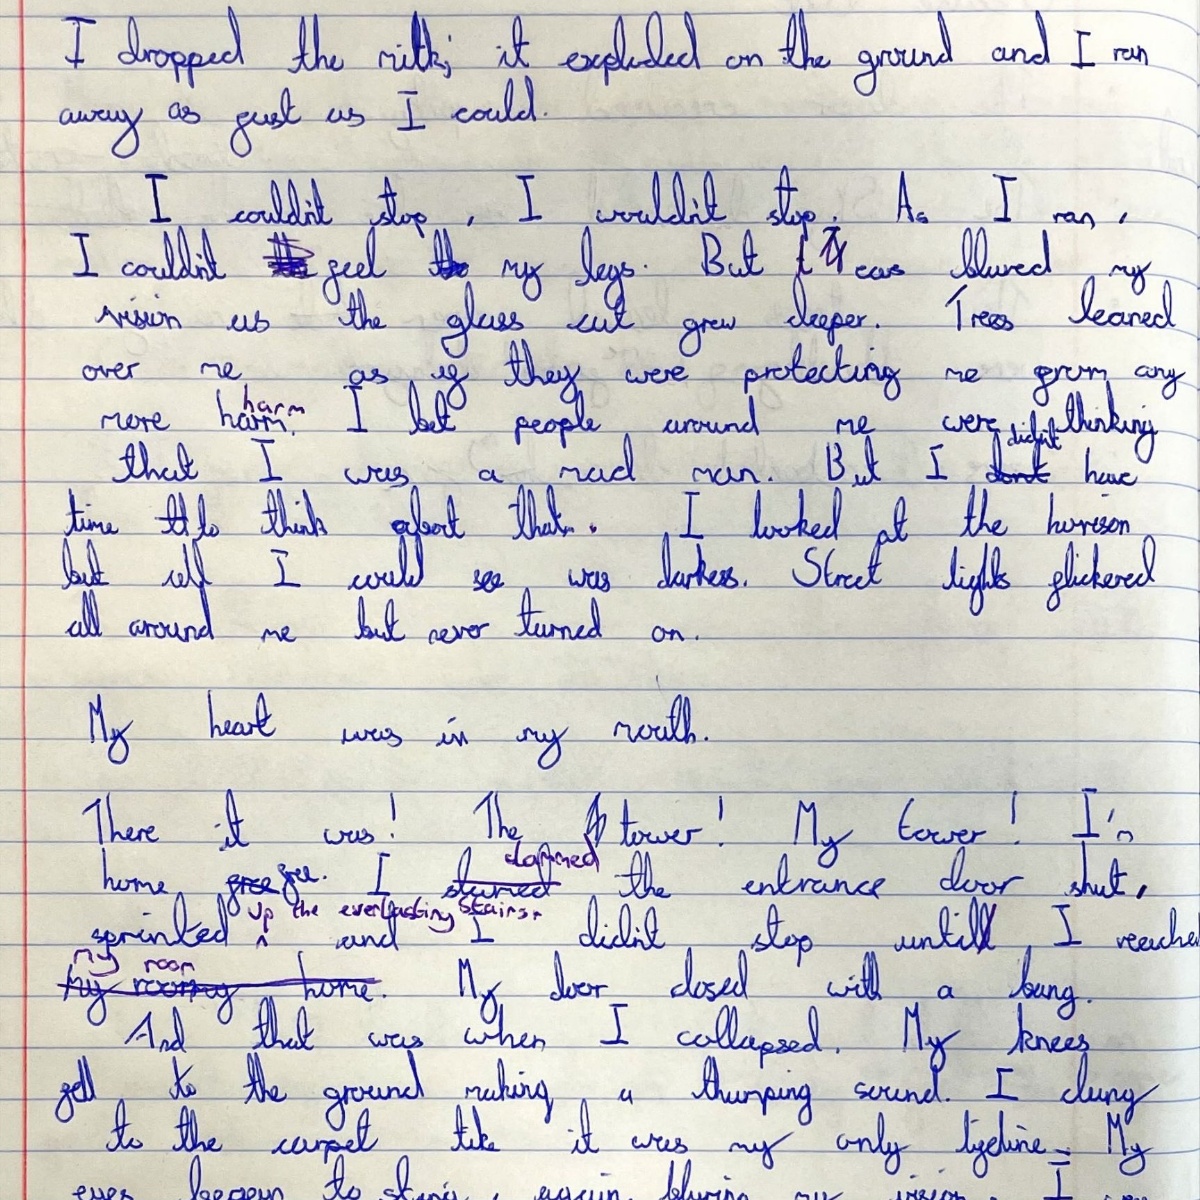 I dropped the milk; it exploded on the ground and I ran
away as fast as I could.
I couldn't stop, I wouldn't stop. As I ran,
I couldn't feel my legs. But tears blured my
vision as the glass cut grew deeper. Trees leaned
over me as if they were protecting me from any
more harm. harm I bet people around me were thinking
that I was a mad man. But I dont didn't have
time to think about that. I looked at the horison
but all I could see was darkess. Street lights flickered
all around me but never turned on.
My heart was in my mouth.
There it was! The tower! My tower! I'm
home free free. I slamed slammed the entrance door shut,
sprinted up the everlasting stairs, and I didn't stop untill I reache
my room
My room home. My door closed with a bang.
And that was when I collapsed. My knees
fell to the ground making a thumping sound. I clung
to the carpet like it was my only lifeline. My
eyes began to sting, again bluring my vision. I